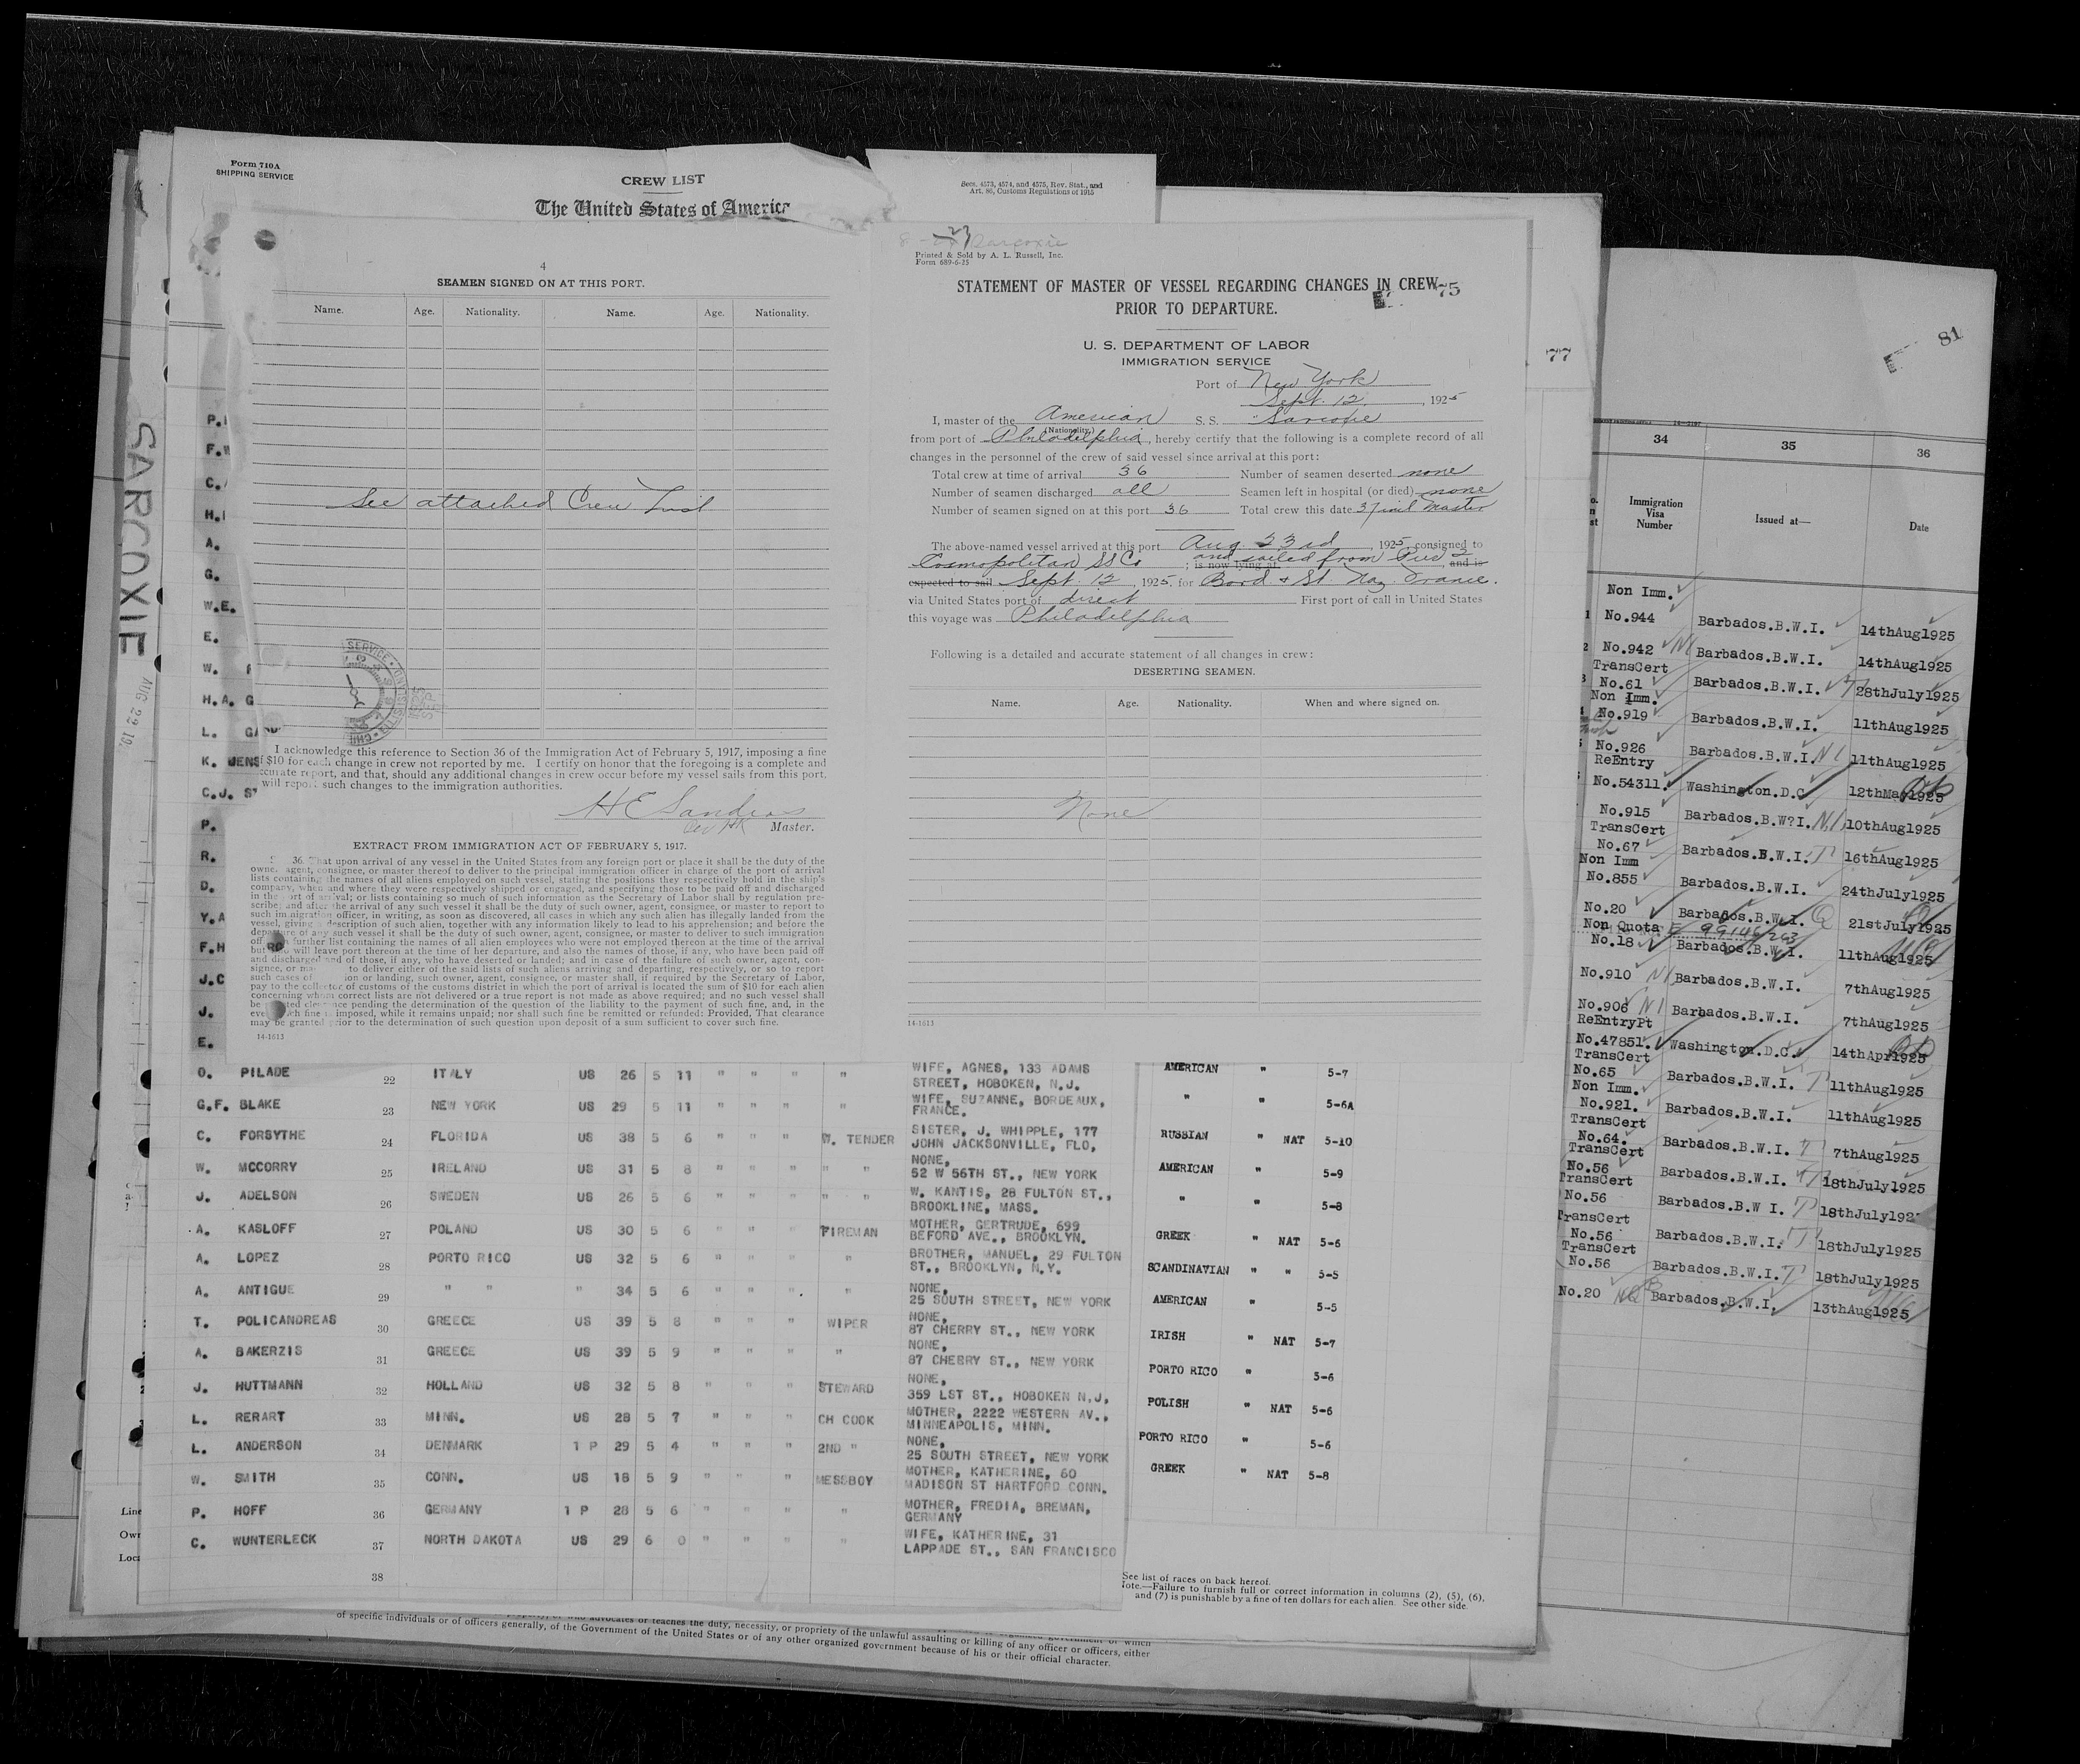 Form 710A
SHIPPING SERVICE
CREW LIST
The United States of America
Secs. 4573, 4574, and 4575, Rev. Stat., and
Art. 86, Customs Regulations of 1915
SARCOXIE
AUG 23 19
4
SEAMEN SIGNED ON AT THIS PORT.
Name. Age. Nationality. Name. Age. Nationality.
See attached Crew List
I acknowledge this reference to Section 36 of the Immigration Act of February 5, 1917, imposing a fine
$10 for each change in crew not reported by me. I certify on honor that the foregoing is a complete and
ccurate report, and that, should any additional changes in crew occur before my vessel sails from this port,
will report such changes to the immigration authorities.
H E Sanders
Master.
EXTRACT FROM IMMIGRATION ACT OF FEBRUARY 5, 1917.
36. That upon arrival of any vessel in the United States from any foreign port or place it shall be the duty of the
owner, agent, consignee, or master thereof to deliver to the principal immigration officer in charge of the port of arrival
lists containing the names of all aliens employed on such vessel, stating the positions they respectively hold in the ship's
company, when and where they were respectively shipped or engaged, and specifying those to be paid off and discharged
in the port of arrival; or lists containing so much of such information as the Secretary of Labor shall by regulation pre-
scribe; and after the arrival of any such vessel it shall be the duty of such owner, agent, consignee, or master to report to
such immigration officer, in writing, as soon as discovered, all cases in which any such alien has illegally landed from the
vessel, giving a description of such alien, together with any information likely to lead to his apprehension; and before the
departure of any such vessel it shall be the duty of such owner, agent, consignee, or master to deliver to such immigration
off further list containing the names of all alien employees who were not employed thereon at the time of the arrival
but will leave port thereon at the time of her departure, and also the names of those, if any, who have been paid off
and discharged and of those, if any, who have deserted or landed; and in case of the failure of such owner, agent, con-
signee, or ma to deliver either of the said lists of such aliens arriving and departing, respectively, or so to report
such cases of ion or landing, such owner, agent, consignee, or master shall, if required by the Secretary of Labor,
pay to the collector of customs of the customs district in which the port of arrival is located the sum of $10 for each alien
concerning whom correct lists are not delivered or a true report is not made as above required; and no such vessel shall
be granted clearance pending the determination of the question of the liability to the payment of such fine, and, in the
event such fine is imposed, while it remains unpaid; nor shall such fine be remitted or refunded: Provided, That clearance
may be granted prior to the determination of such question upon deposit of a sum sufficient to cover such fine.
14-1613
Sarcoxie
Printed & Sold by A. L. Russell, Inc.
Form 689-6-25
STATEMENT OF MASTER OF VESSEL REGARDING CHANGES IN CREW
PRIOR TO DEPARTURE.
75
U. S. DEPARTMENT OF LABOR
IMMIGRATION SERVICE
Port of New York
Sept. 12, 1925
I, master of the American S. S. Sarcoxie
(Nationality)
from port of Philadelphia, hereby certify that the following is a complete record of all
changes in the personnel of the crew of said vessel since arrival at this port:
Total crew at time of arrival 36 Number of seamen deserted none
Number of seamen discharged all Seamen left in hospital (or died) none
Number of seamen signed on at this port 36 Total crew this date 37 incl Master
The above-named vessel arrived at this port Aug 23rd, 1925, consigned to
Cosmopolitan SS Co; is now lying at and sailed from Pier 2, and is
expected to sail Sept. 12, 1925, for Bord & St. Naz. France.
via United States port of direct First port of call in United States
this voyage was Philadelphia
Following is a detailed and accurate statement of all changes in crew:
DESERTING SEAMEN.
Name. Age. Nationality. When and where signed on.
None
14-1613
77
81
P.
F.W
C.
H.
A.
G.
W.E.
E.
W.
H.A. G
L. GA
K. JENS
C.J. ST
P.
R.
D.
Y.A
F.H
J.C
J.
E.
O. PILADE 22 ITALY US 26 5 11 " " " " WIFE, AGNES, 133 ADAMS
STREET, HOBOKEN, N.J.
G.F. BLAKE 23 NEW YORK US 29 5 11 " " " " WIFE, SUZANNE, BORDEAUX,
FRANCE.
C. FORSYTHE 24 FLORIDA US 38 5 6 " " " W. TENDER SISTER, J. WHIPPLE, 177
JOHN JACKSONVILLE, FLO,
W. MCCORRY 25 IRELAND US 31 5 8 " " " " " NONE,
52 W 56TH ST., NEW YORK
J. ADELSON 26 SWEDEN US 26 5 6 " " " " " W. KANTIS, 28 FULTON ST.,
BROOKLINE, MASS.
A. KASLOFF 27 POLAND US 30 5 6 " " " FIREMAN MOTHER, GERTRUDE, 699
BEFORD AVE., BROOKLYN.
A. LOPEZ 28 PORTO RICO US 32 5 6 " " " " BROTHER, MANUEL, 29 FULTON
ST., BROOKLYN, N.Y.
A. ANTIGUE 29 " " " 34 5 6 " " . " NONE,
25 SOUTH STREET, NEW YORK
T. POLICANDREAS 30 GREECE US 39 5 8 " " " WIPER NONE,
87 CHERRY ST., NEW YORK
A. BAKERZIS 31 GREECE US 39 5 9 " " " " NONE,
87 CHERRY ST., NEW YORK
J. HUTTMANN 32 HOLLAND US 32 5 8 " " " STEWARD NONE,
359 LST ST., HOBOKEN N.J,
L. RERART 33 MINN. US 28 5 7 " " " CH COOK MOTHER, 2222 WESTERN AV.,
MINNEAPOLIS, MINN.
L. ANDERSON 34 DENMARK 1 P 29 5 4 " " " 2ND " NONE,
25 SOUTH STREET, NEW YORK
W. SMITH 35 CONN. US 18 5 9 " " " MESSBOY MOTHER, KATHERINE, 60
MADISON ST HARTFORD CONN.
P. HOFF 36 GERMANY 1 P 28 5 6 " " " " MOTHER, FREDIA, BREMAN,
GERMANY
C. WUNTERLECK 37 NORTH DAKOTA US 29 6 0 " " " " WIFE, KATHERINE, 31
LAPPADE ST., SAN FRANCISCO
38
AMERICAN " 5-7
" " 5-6A
RUSSIAN " NAT 5-10
AMERICAN " 5-9
" " 5-8
GREEK " NAT 5-6
SCANDINAVIAN " " 5-5
AMERICAN " 5-5
IRISH " NAT 5-7
PORTO RICO " 5-6
POLISH " NAT 5-6
PORTO RICO " 5-6
GREEK " NAT 5-8
Line
Own
Loca
See list of races on back hereof.
Note.—Failure to furnish full or correct information in columns (2), (5), (6),
and (7) is punishable by a fine of ten dollars for each alien. See other side.
or who advocates or teaches the duty, necessity, or propriety of the unlawful assaulting or killing of any officer or officers, either
of specific individuals or of officers generally, of the Government of the United States or of any other organized government because of his or their official character.
34 35 36
Immigration
Visa
Number
Issued at—
Date
Non Imm.
No.944 Barbados.B.W.I. 14thAug1925
No.942 NI Barbados.B.W.I. 14thAug1925
TransCert
No.61 Barbados.B.W.I. T 28thJuly1925
Non Imm.
No.919 Barbados.B.W.I. 11thAug1925
No.926 Barbados.B.W.I. NI 11thAug1925
ReEntry
No.54311. Washington.D.C 12thMay1925
No.915 Barbados.B.W?I. N.I. 10thAug1925
TransCert
No.67 Barbados.B.W.I. T 16thAug1925
Non Imm
No.855 Barbados.B.W.I. 24thJuly1925
No.20 Barbados.B.W.I. Q 21stJuly1925
Non Quota
No.18 Barbados.B.W.I. 11thAug1925
No.910 NI Barbados.B.W.I. 7thAug1925
No.906 NI Barbados.B.W.I. 7thAug1925
ReEntryPt
No.47851. Washington.D.C. 14thApr1925
TransCert
No.65 Barbados.B.W.I. T 11thAug1925
Non Imm.
No.921. Barbados.B.W.I. 11thAug1925
TransCert
No.64. Barbados.B.W.I. T 7thAug1925
TransCert
No.56 Barbados.B.W.I. T 18thJuly1925
TransCert
No.56 Barbados.B.W I. T 18thJuly192
TransCert
No.56 Barbados.B.W.I. T 18thJuly1925
TransCert
No.56 Barbados.B.W.I. T 18thJuly1925
No.20 NQ Barbados.B.W.I, 13thAug1925